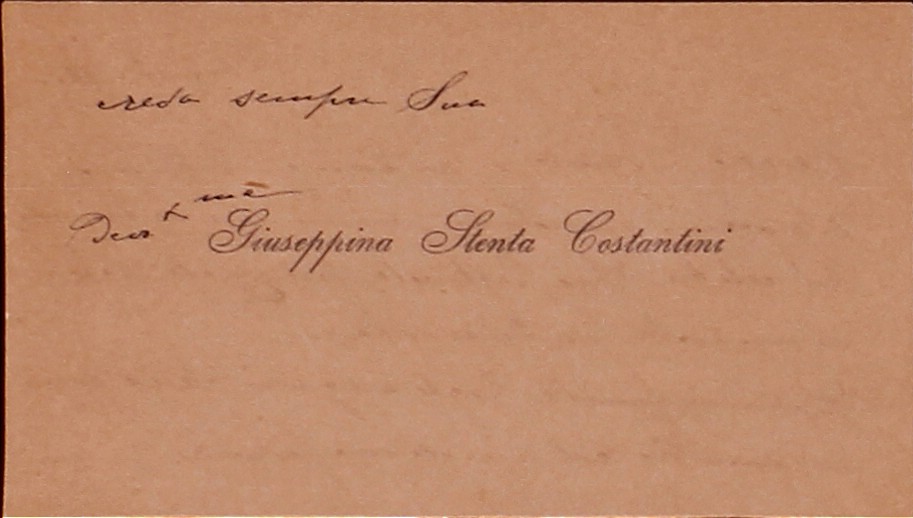 creda sempre Sua
Devma Giuseppina Stenta Costantini